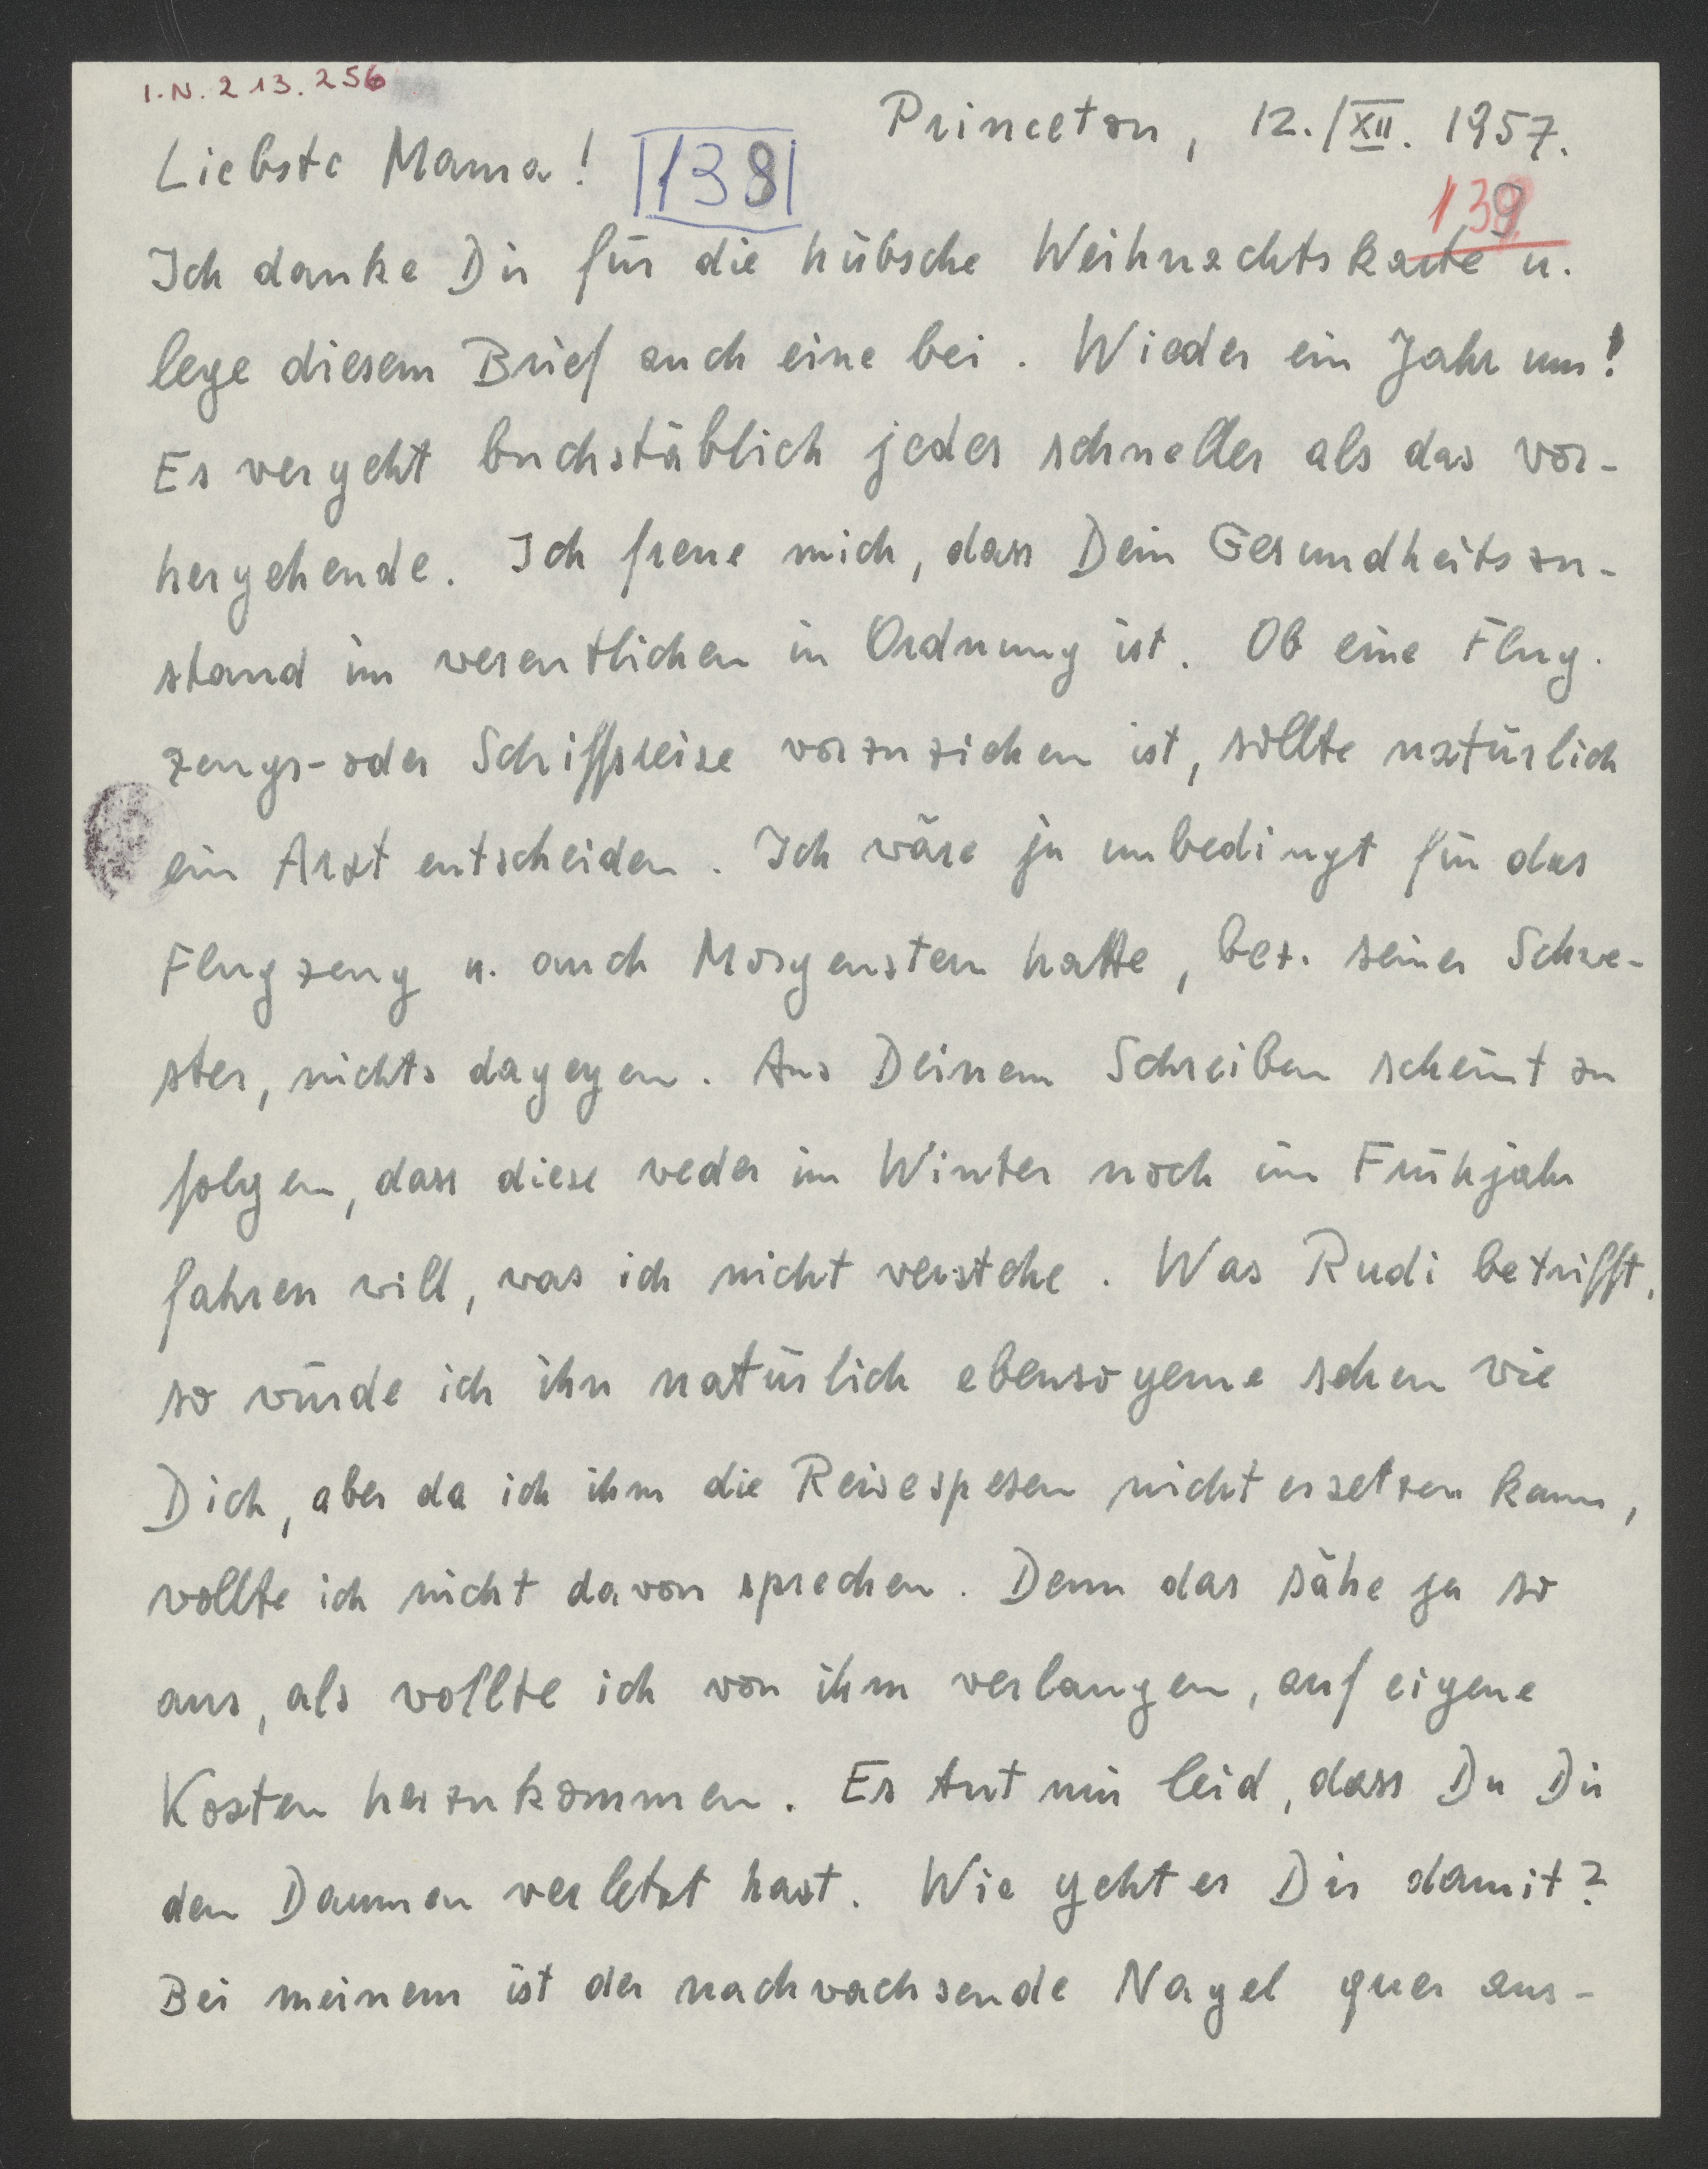 I.N. 213.256
Princeton, 12./XII. 1957.
Liebste Mama! 138
139
Ich danke Dir für die hübsche Weihnachtskarte u.
lege diesem Brief auch eine bei. Wieder ein Jahr um!
Es vergeht buchstäblich jedes schneller als das vor-
hergehende. Ich freue mich, dass Dein Gesundheitszu-
stand im wesentlichen in Ordnung ist. Ob eine Flug-
zeugs- oder Schiffsreise vorzuziehen ist, sollte natürlich
ein Arzt entscheiden. Ich wäre ja unbedingt für das
Flugzeug u. auch Morgenstern hatte, bez. seiner Schwe-
ster, nichts dagegen. Aus Deinem Schreiben scheint zu
folgen, dass diese weder im Winter noch im Frühjahr
fahren will, was ich nicht verstehe. Was Rudi betrifft,
so würde ich ihn natürlich ebenso gerne sehen wie
Dich, aber da ich ihm die Reisespesen nicht ersetzen kann,
wollte ich nicht davon sprechen. Denn das sähe ja so
aus, als wollte ich von ihm verlangen, auf eigene
Kosten herzukommen. Es tut mir leid, dass Du Dir
den Daumen verletzt hast. Wie geht es Dir damit?
Bei meinem ist der nachwachsende Nagel quer aus-